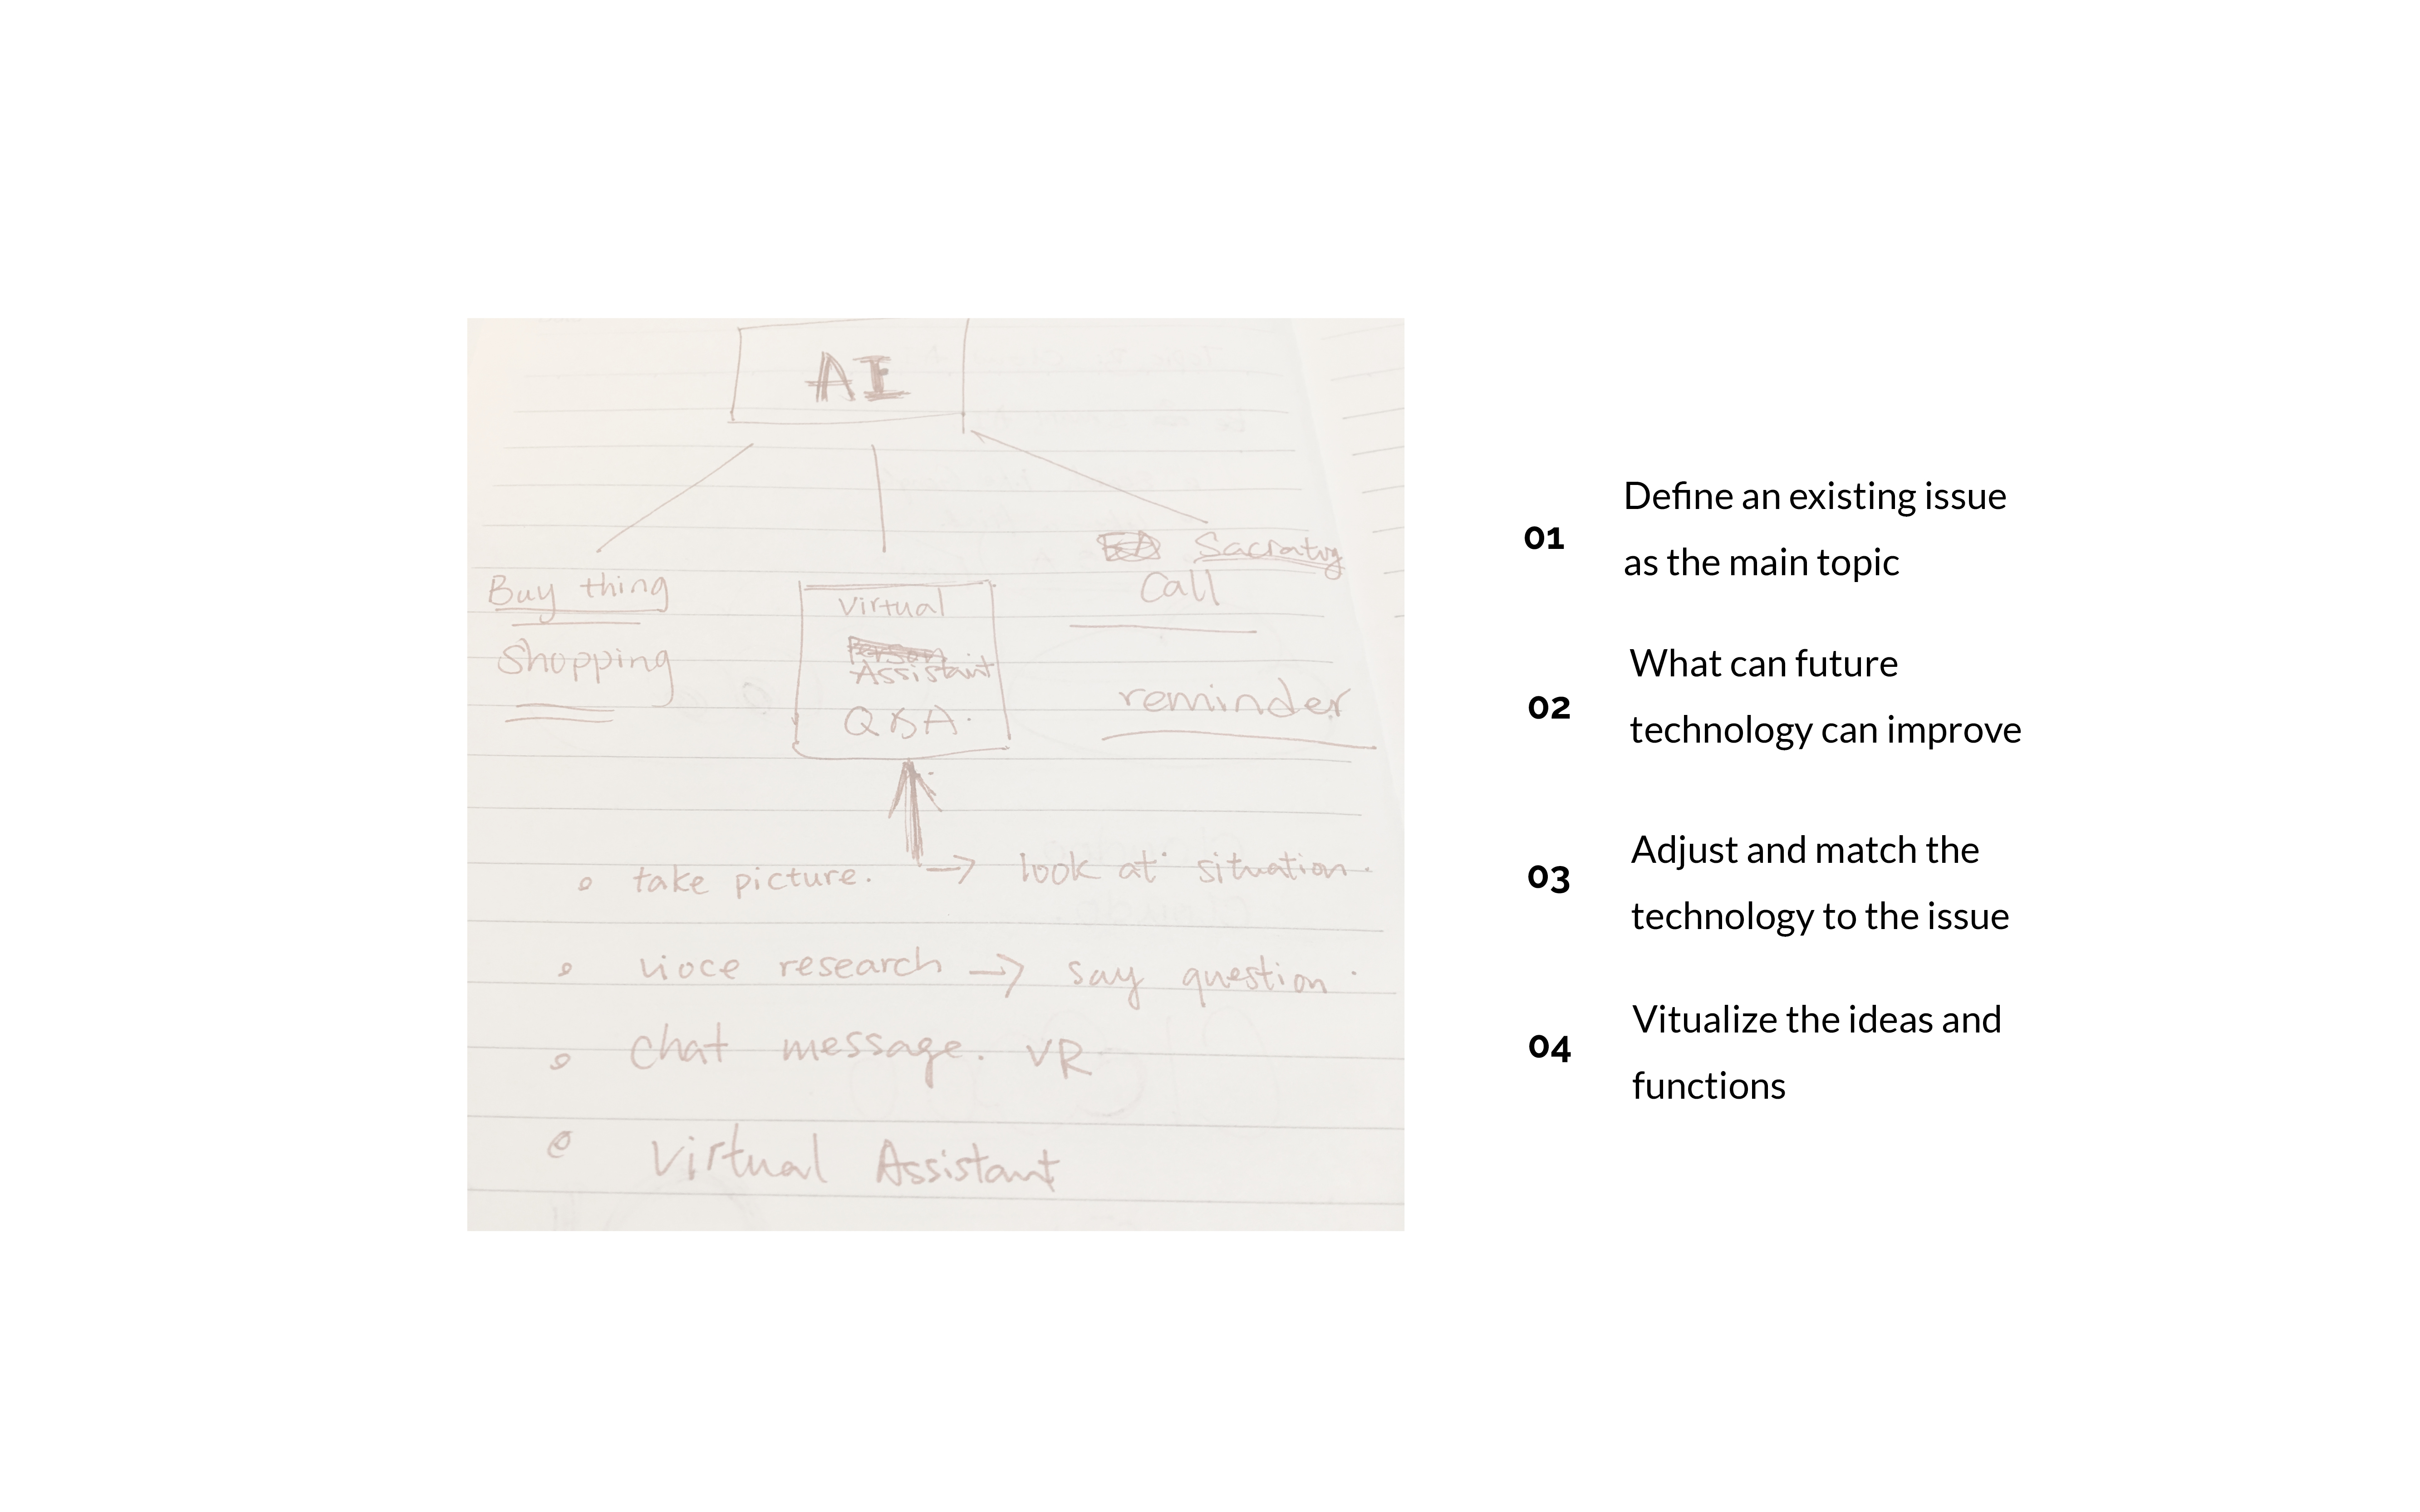 AI
Buy thing
Shopping
Virtual
Person
Assistant
Q&A.
Sacratry
Call
reminder
take picture. → look at situation.
vioce research → say question.
chat message. VR
Virtual Assistant
01 Define an existing issue
as the main topic
02 What can future
technology can improve
03 Adjust and match the
technology to the issue
04 Vitualize the ideas and
functions